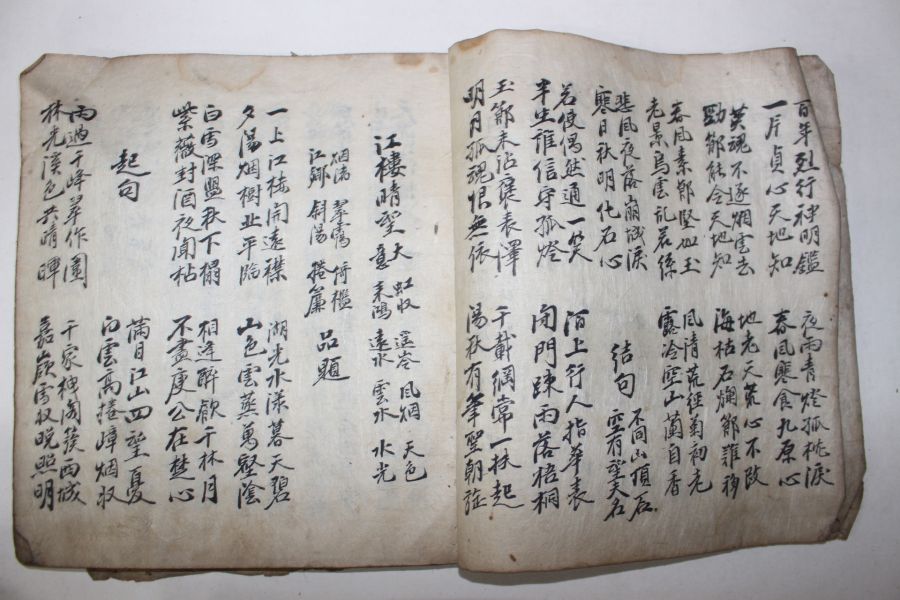 百年烈行神明鑑 夜雨青燈孤枕淚
一片貞心天地知 春風寒食九原心
英魂不逐烟雲去 地老天荒心不改
勁節能令天地知 海枯石爛節難移
春風素節堅如玉 風清荒徑菊初老
老景烏雲亂若絲 露冷空山蘭自香
悲風夜落崩城淚 結句 不同山頂石
寒日秋明化石心 空有望夫名
若使偶然通一笑 陌上行人指華表
半生誰信守孤燈 閉門疎雨落梧桐
玉節未沾褒表澤 千載綱常一扶起
明月孤魂恨無依 陽秋有筆聖朝
江樓晴望 天 虹收 遠岑 風烟 天色
意 來鴻 遠水 雲水 水光
烟満 翠靄 倚檻
江鄉 斜陽 捲簾 品題
一上江樓開遠襟 湖光水漾暮天碧
夕陽烟樹岸平臨 山色雲蒸萬壑陰
白雪深盟秋下榻 相逢醉歌千林月
紫薇封酒夜聞枯 不盡庾公在楚心
起句 滿目江山四望夏
白雲高捲嶂烟收
雨過千峰翠作圍 千家抻閣簇西城
林光溪色共晴暉 嘉嶺雪收晚照明